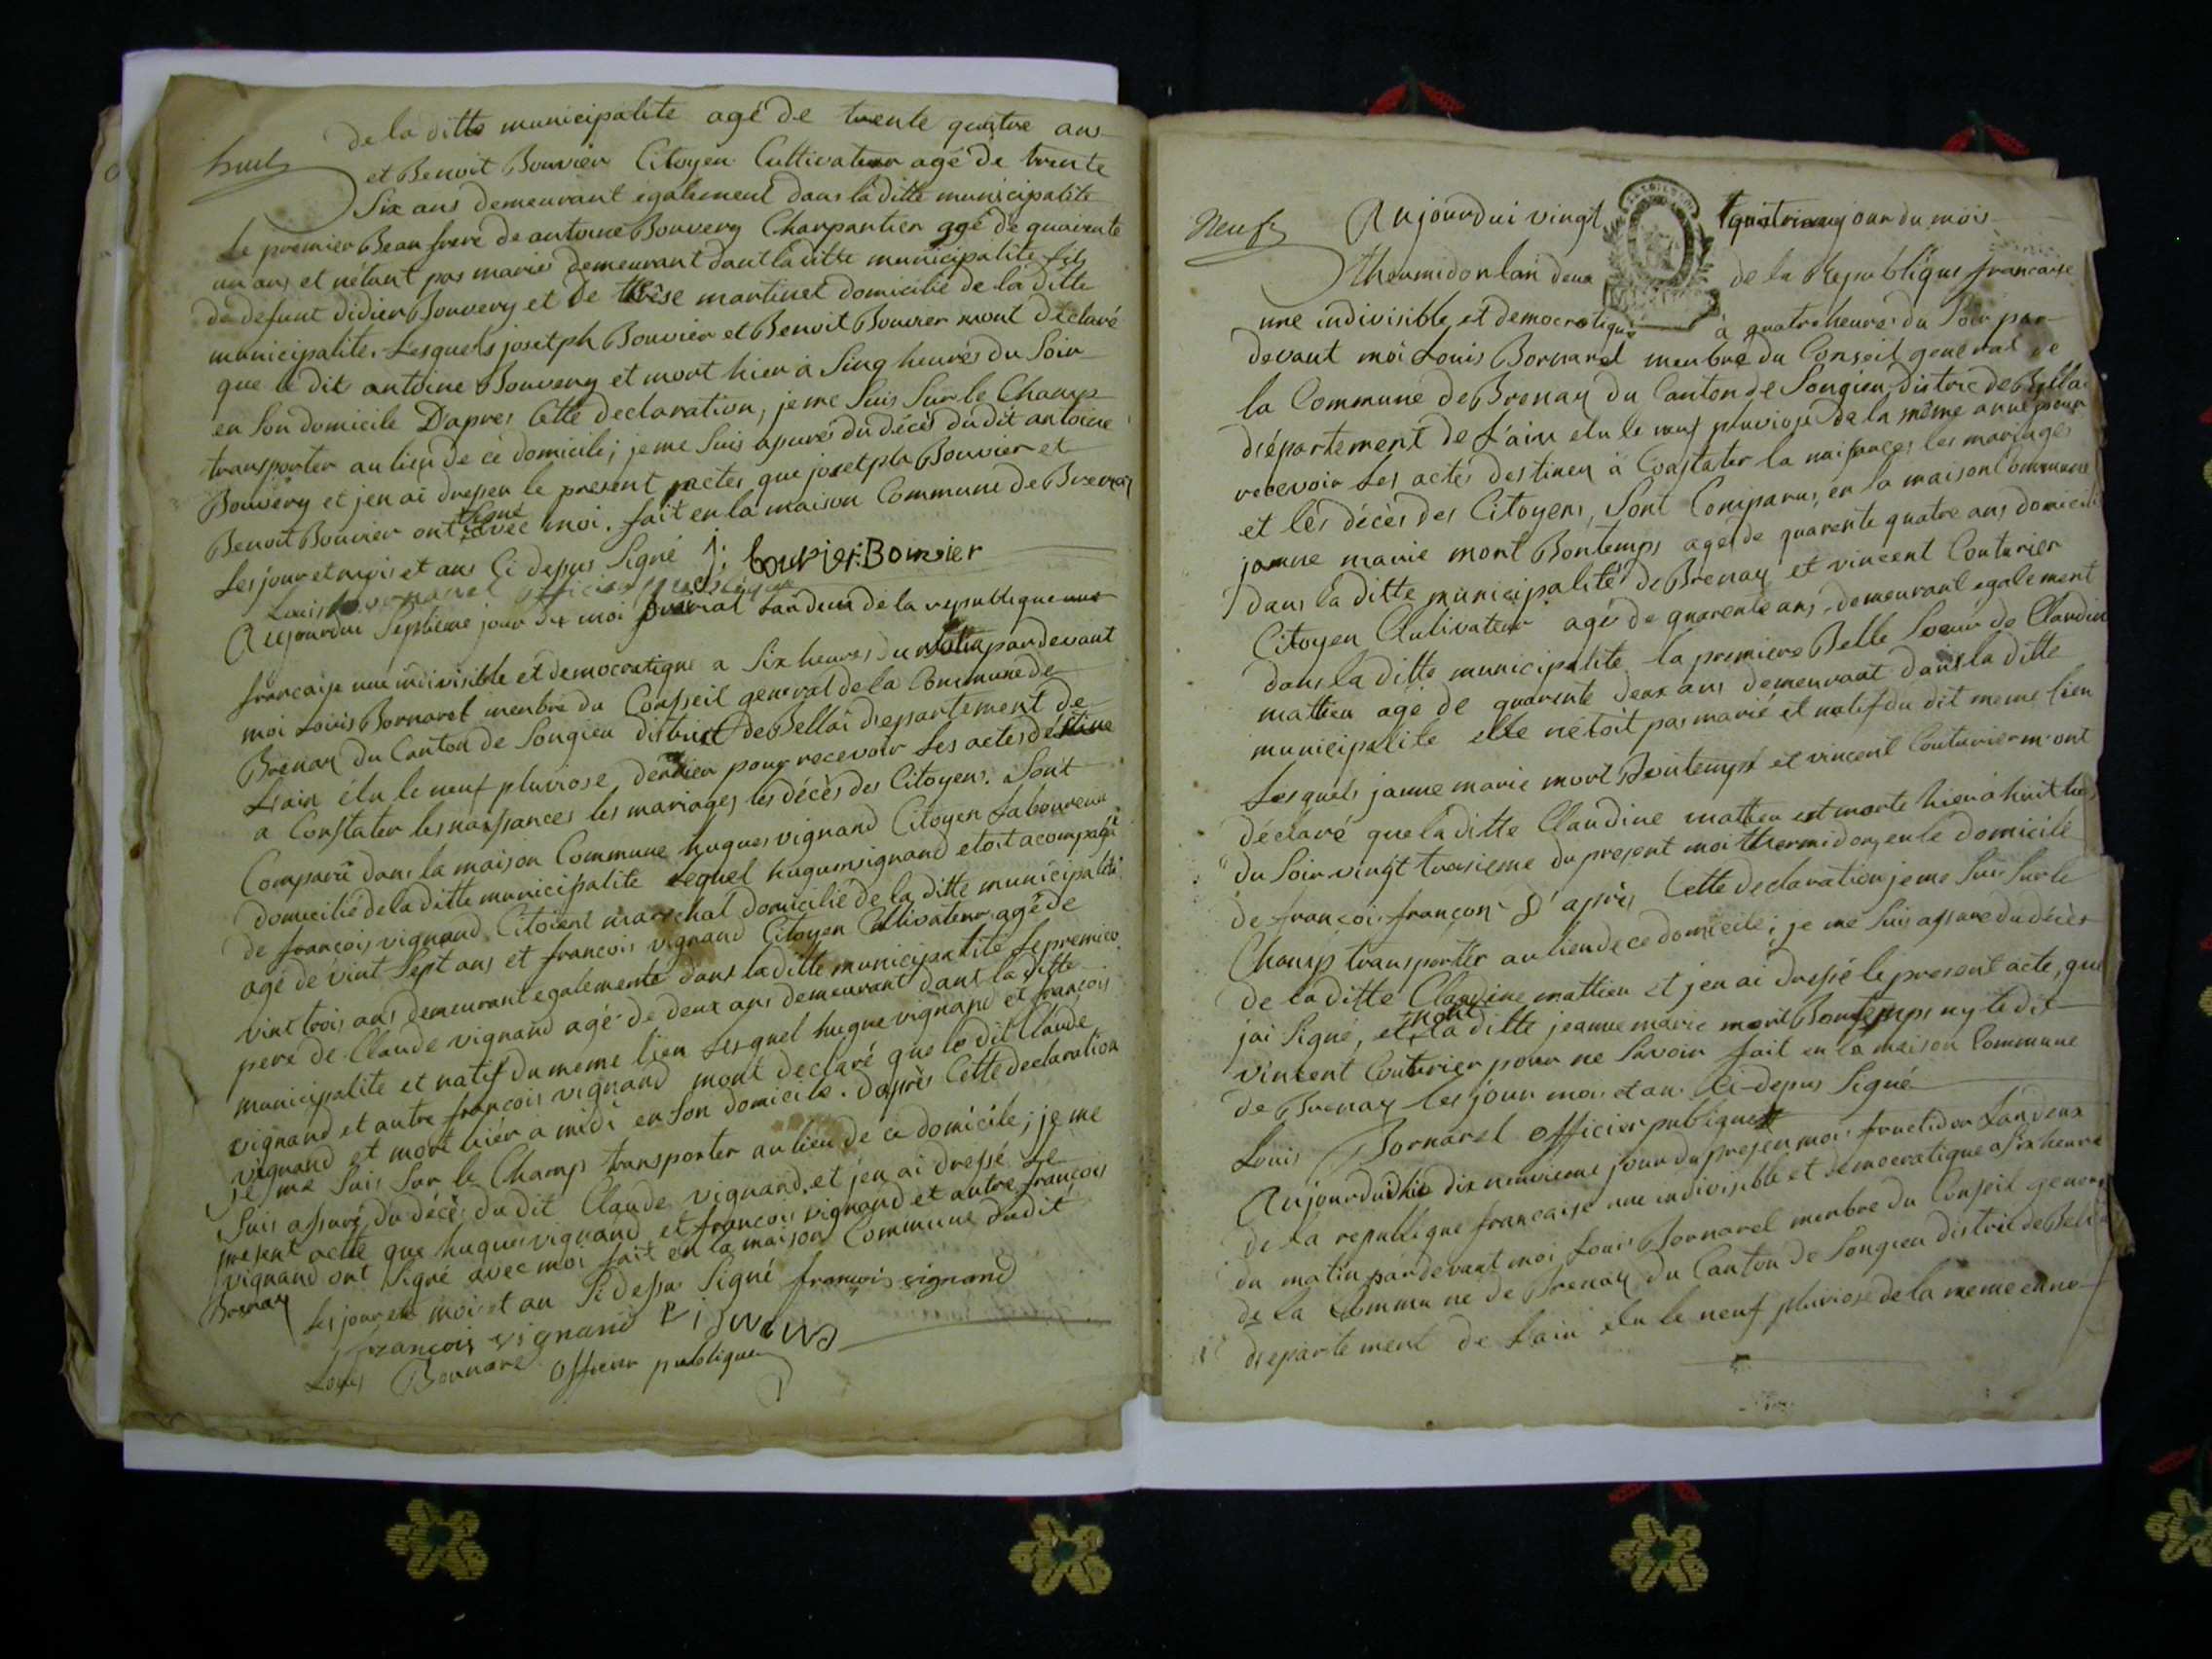 huit
de la ditte municipalite agé de trente quatre ans
et Benoit Bouvier Citoyen Cultivateur agé de trente
Six ans demeurant egalement dans la ditte municipalite
Le premier Beau frere de antoine Bouvery Charpantier agé de quarente
un ans et nétant pas marié demeurant dant la ditte municipalite fils
de defunt didier Bouvery et de thrèse martinet domicilié de la ditte
municipalite. Lesquels josetph Bouvier et Benoit Bouvier mont déclaré
que le dit antoine Bouvery et mort hier à Sinq heures du Soir
en Son domicile D'apres Cette declaration, je me Suis Sur le Champ
transporter au lieu de ce domicile; je me Suis asuré du décès du dit antoine
Bouvery et jen ai dressen le present actes que josetph Bouvier et
Benoit Bouvier ont signé avec moi. fait en la maison Commune de Brenay
Les jour et mois et ans Ci depus Signé j. bouvier. Bouvier
Louis Bornarel officier publique
Aujourdui Septieme jour du moi prerial Lan deux de la republique une
francaise une indivisible et democratique a Six heures du matin pardevant
moi Louis Bornarel menbre du Conseil general de la Commune de
Brenay du Canton de Songieu district de Bellai departement de
Lain élu le neuf pluviose dernier pour recevoir Les actes destiné
a Constater les naissances les mariages les décès des Citoyens. Sont
Comparu dans la maison Commune hugues vignand Citoyen Laboureur
domicilié de la ditte municipalite Lequel hugues vignand etoit acompagé
de françois vignand Citoient marechal domicilié de la ditte municipalité
agé de vint Sept ans et francois vignand Citoyen Cultivateur agé de
vint trois ans demeurant egalemente dans la ditte municipalite Le premier
pere de Claude vignand agé de deux ans demeurant dans la ditte
municipalite et natif du meme lieu Lesquel hugue vignand et françois
vignand et autre françois vignand mont declaré que le dit Claude
vignand et mort hiér a midi en Son domicile. dapres Cette declaration
je me Suis Sur le Champ transporter au lieu de ce domicile; je me
Suis assuré du décès du dit Claude vignand, et jen ai dressé Le
present acte que hugues vignand et françois vignand et autre françois
vignand ont Signé avec moi fait en la maison Commune dudit
Brenay Les jour et moi et an Si dessu Signé françois vignand
françois vignand
Louis Bornarel officier publique
Neuf
Aujourdui vingt quatrieme jour du mois
thermidor lan deux de la Republique francaise
une indivisible et democratique à quatre heures du Soir par
devant moi Louis Bornarel menbre du Conseil general de
la Commune de Brenay du Canton de Songieu distric de Bellai
département de L'ain elu le neuf pluviose de la même anné pour
recevoir Les actes destinez à Constater la naissances les mariages
et les décès des Citoyens, Sont Comparus en la maison Commune
janne marie mont Bontemps agé de quarente quatre ans domicilié
dans la ditte municipalité de Brenay et vincent Couturier
Citoyen Cultivateur agé de quarente ans demeurant egalement
dans la ditte municipalite la premiere Belle Soeur de Claudine
mattieu agé de quarente deux ans demeurant dans la ditte
municipalite elle nétoit pas marié et natif du dit meme lieu
Lesquels janne marie mont Bontemps et vincent Couturier m'ont
déclaré que la ditte Claudine mattieu est morte hier à huit heures
du Soir vingt troisieme du present moi thermidor, en le domicile
de françois françon D'après Cette declaration je me Suis Sur le
Champ transportér au lieu de ce domicile; je me Suis assuré du décès
de la ditte Claudine mattieu et jen ai dressé le present acte, que
jai Signé, et non la ditte jeanne marie mont Bontemps ny le dit
vincent Couturier pour ne Savoir fait en la maison Commune
de Brenay les jour moi et an Ci-depus Signé
Louis Bornarel officier publique
Aujourduidhui dix neuvieme jour du presen mois fructidor Lan deux
de la republique francaise une indivisible et democratique a Six heure
du matin pardevant moi Louis Bornarel menbre du Conseil general
de la Commune de Brenay du Canton de Songieu distric de Bellai
département de Lain elu le neuf pluviose de la meme anné